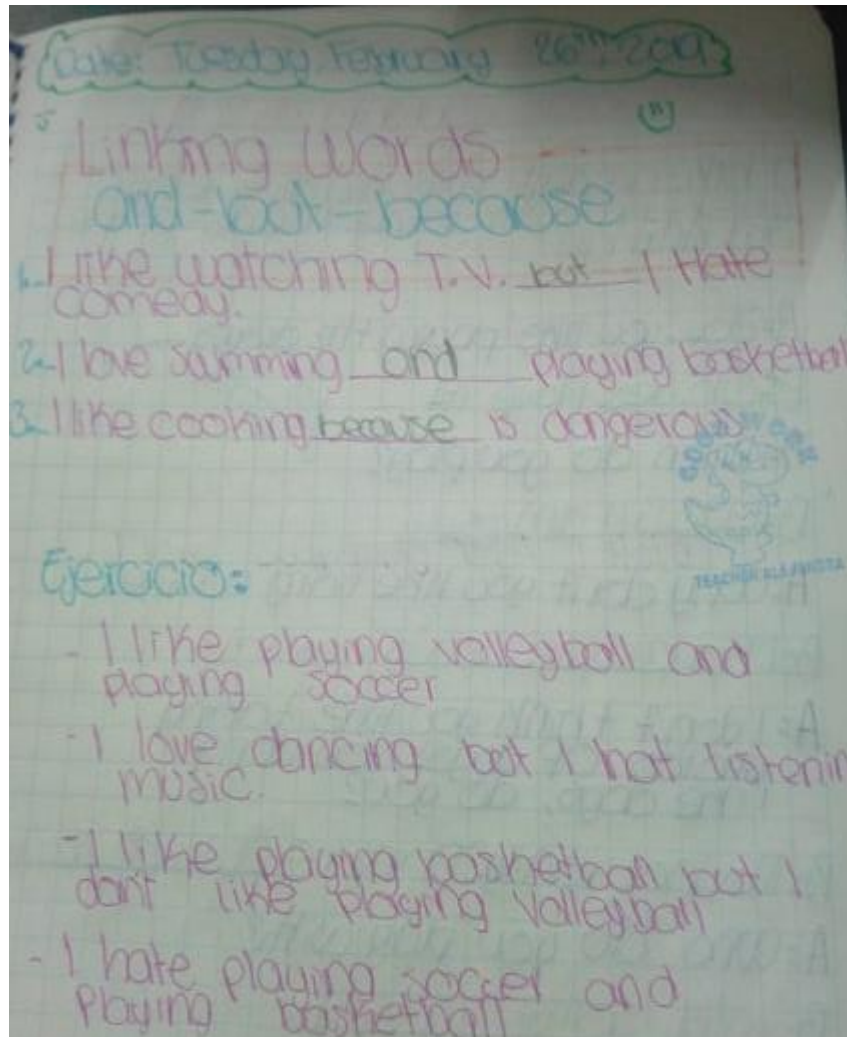 Date: Tuesday February 26TH 2019
Linking Words
and-but-because
1. I like watching T.V. but I Hate
comedy.
2. I love swimming and playing basketball
3. I like cooking because is dangerous
GOOD WORK
TEACHER ALEJANDRA
Ejercicio:
- I like playing volleyball and
playing soccer
- I love dancing but I hat listenin
music.
- I like playing basketball but I
don't like playing volleyball
- I hate playing soccer and
playing basketball